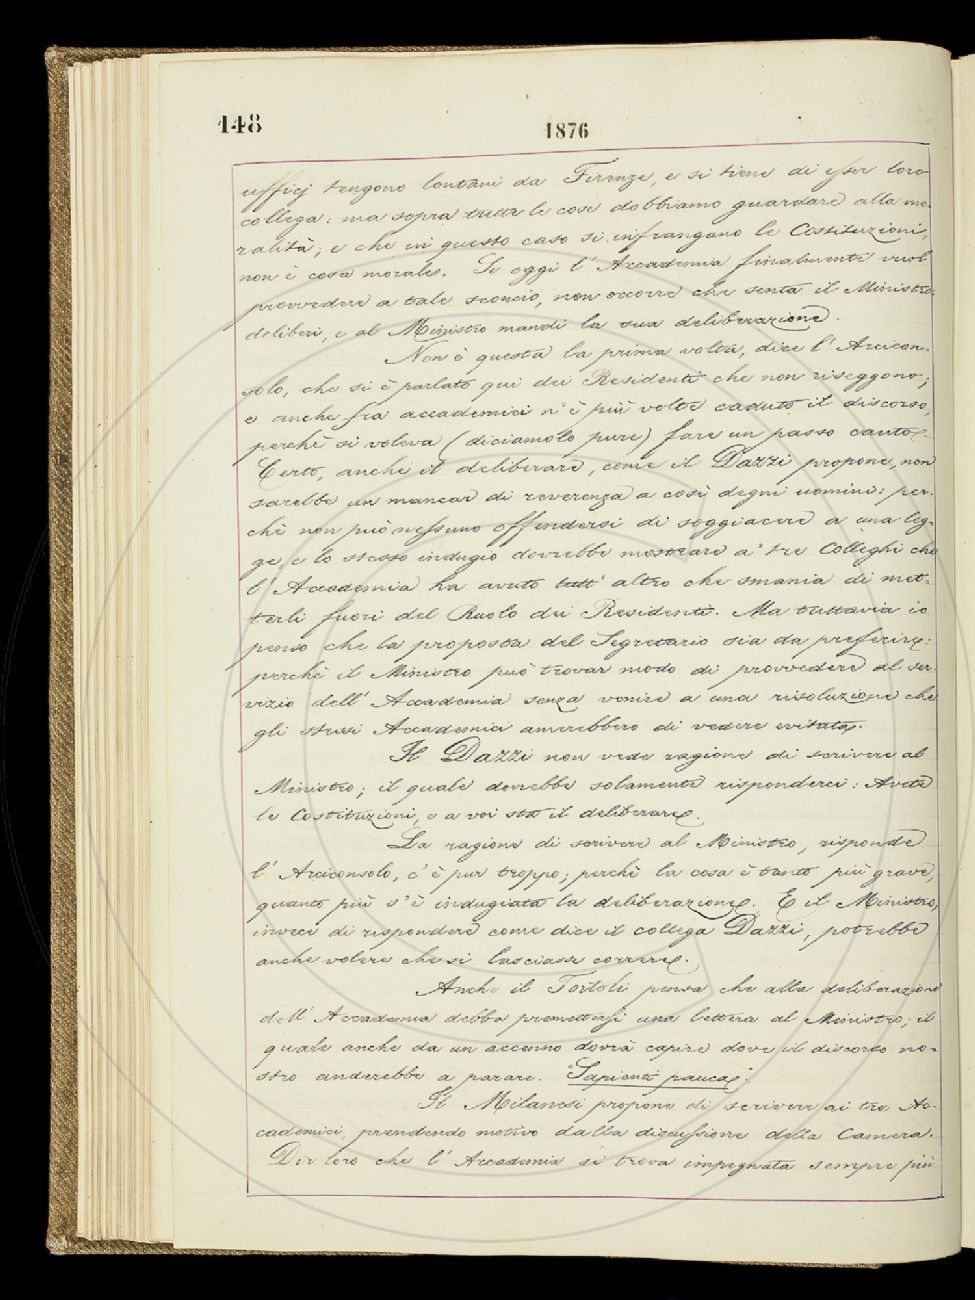 148
1876
ufficj tengono lontani da Firenze, e si tiene di esser loro
collega: ma sopra tutte le cose dobbiamo guardare alla mo-
ralità; e che in questo caso si infrangano le Costituzioni,
non è cosa morale. Se oggi l'Accademia finalmente vuol
provvedere a tale sconcio, non occorre che senta il Ministro:
deliberi, e al Ministro mandi la sua deliberazione.
Non è questa la prima volta, dice l'Arcicon-
solo, che si è parlato qui dei Residenti che non riseggono;
e anche fra accademici n'è più volte caduto il discorso,
perchè si voleva (diciamolo pure) fare un passo cauto.
Certo, anche il deliberare, come il Dazzi propone, non
sarebbe un mancar di reverenza a così degni uomini: per-
chè non può nessuno offendersi di soggiacere a una leg-
ge, e lo stesso indugio dovrebbe mostrare a' tre Colleghi che
l'Accademia ha avuto tutt'altro che smania di met-
terli fuori del Ruolo dei Residenti. Ma tuttavia io
penso che la proposta del Segretario sia da preferire:
perchè il Ministro può trovar modo di provvedere al ser-
vizio dell'Accademia senza venire a una risoluzione che
gli stessi Accademici amerebbero di vedere evitata.
Il Dazzi non vede ragione di scrivere al
Ministro; il quale dovrebbe solamente risponderci: Avete
le Costituzioni, e a voi sta il deliberare.
La ragione di scrivere al Ministro, risponde
l'Arciconsolo, c'è pur troppo; perchè la cosa è tanto più grave,
quanto più s'è indugiata la deliberazione. E il Ministro,
invece di rispondere come dice il collega Dazzi, potrebbe
anche volere che si lasciasse correre.
Anche il Tortoli pensa che alla deliberazione
dell'Accademia debba premettersi una lettera al Ministro; il
quale anche da un accenno dovrà capire dove il discorso no-
stro anderebbe a parare. "Sapienti pauca".
Il Milanesi propone di scrivere ai tre Ac-
cademici, prendendo motivo dalla discussione della Camera.
Dir loro che l'Accademia si trova impegnata sempre più